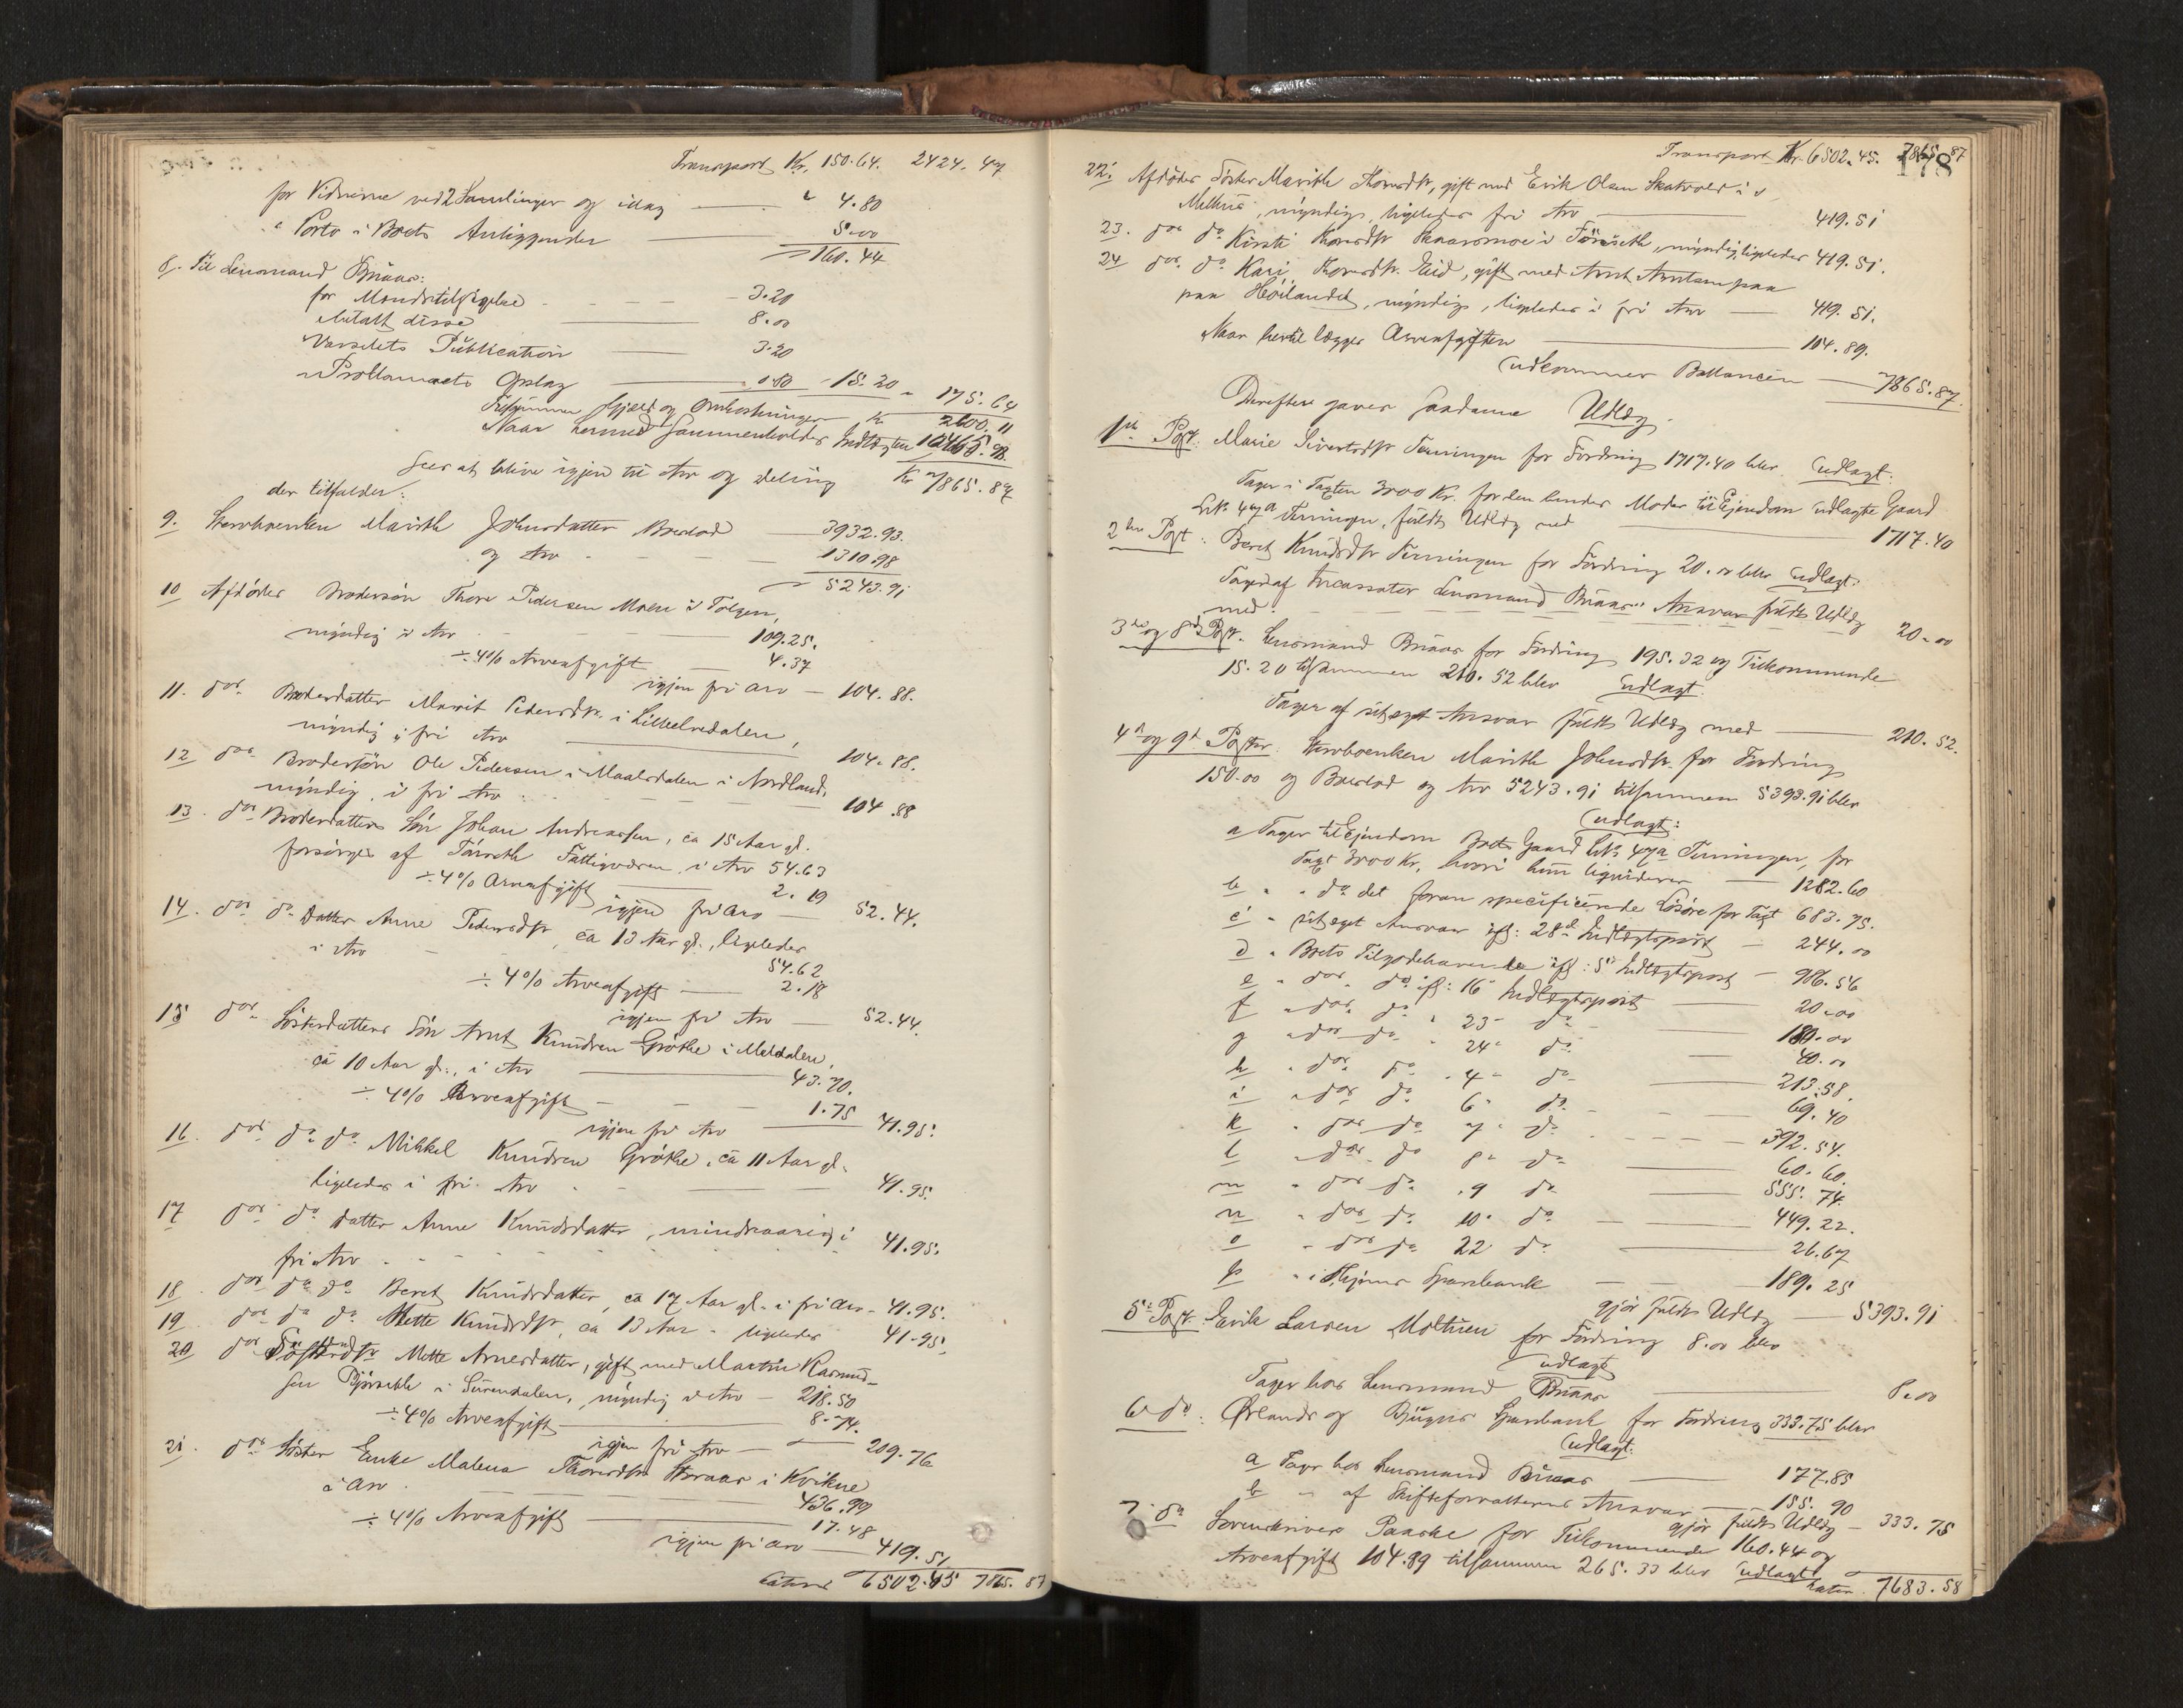 Transport Kr. 150.64. 2424.47
for Vidnerne ved 2 Samlinger og idag — " 4.80
" Porto i Boets Anliggender — 5.00
160.44
8. Til Lensmand Bruaas:
for Mændstilsigelse — 3.20
betalt disse — 8.00
Varselets Publication — 3.20
Proklamaets Opslag — 0.80 15.20 " 175.64
Tilsammen Gjæld og Omkostninger Kr 2600.11
Naar hermed sammenholdes Indtægten 10465.98
sees at blive igjen til Arv og deling Kr 7865.87
der tilfalder:
9. Stervboenken Marith Johnsdatter Boeslod — 3932.93.
og Arv — 1310.98
5243.91
10 Afdødes Brodersøn Thore Pedersen Moen i Tolgen,
myndig i Arv — 109.25.
÷ 4% Arveafgift — 4.37
igjen fri Arv — 104.88.
11. dos. Broderdatter Marit Pedersdtr. i Lilleelvedalen,
myndig i fri Arv — 104.88.
12 dos. Brodersøn Ole Pedersen i Maalsdalen i Nordland,
myndig, i fri Arv — 104.88
13. dos. Broderdatters Søn Johan Andreassen, ca 15 Aar gl.
forsørges af Fattigvæsen, i Arv 54.63
÷ 4% Arveafgift — 2.19
igjen fri Arv — 52.44.
14. dos. do. Datter Anne Pedersdtr, ca 13 Aar gl., ligeledes
i Arv — 54.62
÷ 4% Arveafgift — 2.18
igjen fri Arv — 52.44.
15 dos. Søsterdatters Søn Arnt Knudsen Grøthe i Meldalen,
ca 10 Aar gl., i Arv — 43.70.
÷ 4% Arveafgift — 1.75
igjen fri Arv — 41.95.
16. dos. do. do. Mikkel Knudsen Grøthe, ca 11 Aar gl.
ligeledes i fri Arv — 41.95.
17 dos. do. datter Anne Knudsdatter, mindreaarig i
fri Arv — 41.95.
18. dos. do. do. Beret Knudsdatter, ca 17 Aar gl. i fri Arv - 41.95.
19. dos. do. do. Mette Knudsdtr, ca 13 Aar - ligeledes 41.95.
20 dos. Søsterdtr Mette Arnesdatter, gift med Martin Rasmus-
sen i Surendalen, myndig i Arv — 218.50
÷ 4% Arveafgift — 8.74.
igjen fri Arv — 209.76
21. dos. Søster Enke Malena Thoresdtr i Kvikne
i Arv — 436.99
÷ 4% Arveafgift — 17.48
igjen fri Arv — 419.51
Lateris 6502.45 7865.87
178
Transport Kr. 6502.45. 7865.87
22. Afdødes Søster Marith Thoresdtr, gift med Erik Olsen Skatvold i
myndig, ligeledes fri Arv — 419.51
23. dos. do. Kirsti Thoresdtr, myndig, ligeledes 419.51.
24 dos. do. Kari Thoresdtr. Eid, gift med Arnt Arntsen paa
paa Høilandet, myndig, ligeledes i fri Arv — 419.51.
Naar hertil lægges Arveafgiften — 104.89.
udkommer Ballancen — 7865.87.
Derefter gaves saadanne Udlæg.
1ste Post. Marie Sivertsdtr Tenningen for Fordring 1717.40 blev udlagt:
Tager i Taxten 3000 Kr. for den hendes Moder til Ejendom udlagte Gaard
LNo. 47a Tenningen, fuldt Udlæg med — 1717.40
2den Post. Beret Knudsdtr Tenningen for Fordring 20.00 blev udlagt:
Tager af Incassator Lensmand Bruaas' Ansvar fuldt Udlæg
med — 20.00
3die og 8de Post. Lensmand Bruaas for Fordring 195.32 og Tilkommende
15.20 tilsammen 210.52 blev udlagt.
Tager af sit eget Ansvar fuldt Udlæg med — 210.52.
4de og 9de Poster. Stervboenken Marith Johnsdtr. for Fordring
150.00 og Boeslod og Arv 5243.91 tilsammen 5393.91 blev
udlagt:
a Tager til Ejendom Boets Gaard LNo. 47a Tenningen, for
Taxt 3000 Kr., hvori hun liqviderer — 1282.60
b " " do det foran specificerede Løsøre for Taxt 683.75.
c " sit eget Ansvar ifl: 28de Indtægtspost — 244.00
d " Boets Tilgodehavende ifl: 5te Indtægtspost — 986.56
e " dos. do. ifl: 16de Indtægtspost — 20.00
f " dos. do. " 23- do. — 180.00
g " dos. do. " 24- do. — 40.00
h " dos. do. " 4- do. — 213.58.
i " dos. do. 6- do. — 69.40
k " dos. do. 7- do. — 392.54.
l " dos. do. 8- do. — 60.60.
m " dos. do. 9 do. — 555.74.
n " dos. do. 10- do. — 449.22.
o " dos. do. 22 do. — 26.67
p " i Sparebank — 189.25
gjør fuldt Udlæg — 5393.91
5te Post. Erik Larsen for Fordring 8.00 blev
udlagt
Tager hos Lensmand Bruaas — 8.00
6te do. Ørlands og Bjugns Sparebank for Fordring 333.75 blev
udlagt:
a Tager hos Lensmand Bruaas — 177.85
b " af Skifteforvalterens Ansvar — 155.90
gjør fuldt Udlæg — 333.75
7de do. Sorenskriver Paaske for Tilkommende 160.44 og
Arveafgift 104.89 tilsammen 265.33 blev udlagt
Lateris 7683.58